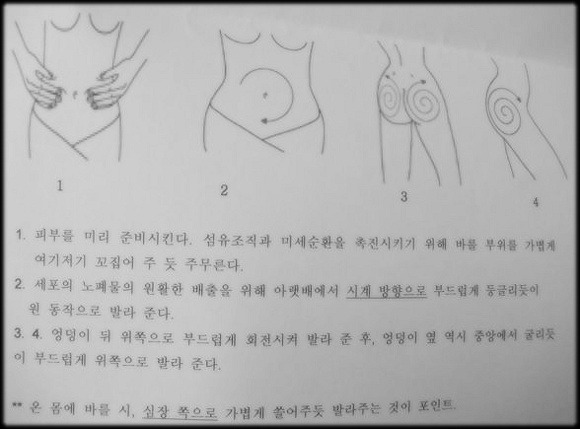 1
2
3
4
1. 피부를 미리 준비시킨다. 섬유조직과 미세순환을 촉진시키기 위해 바를 부위를 가볍게
여기저기 꼬집어 주 듯 주무른다.
2. 세포의 노폐물의 원활한 배출을 위해 아랫배에서 시계 방향으로 부드럽게 둥글리듯이
원 동작으로 발라 준다.
3. 4. 엉덩이 뒤 위쪽으로 부드럽게 회전시켜 발라 준 후, 엉덩이 옆 역시 중앙에서 굴리듯
이 부드럽게 위쪽으로 발라 준다.
** 온 몸에 바를 시, 심장 쪽으로 가볍게 쓸어주듯 발라주는 것이 포인트.